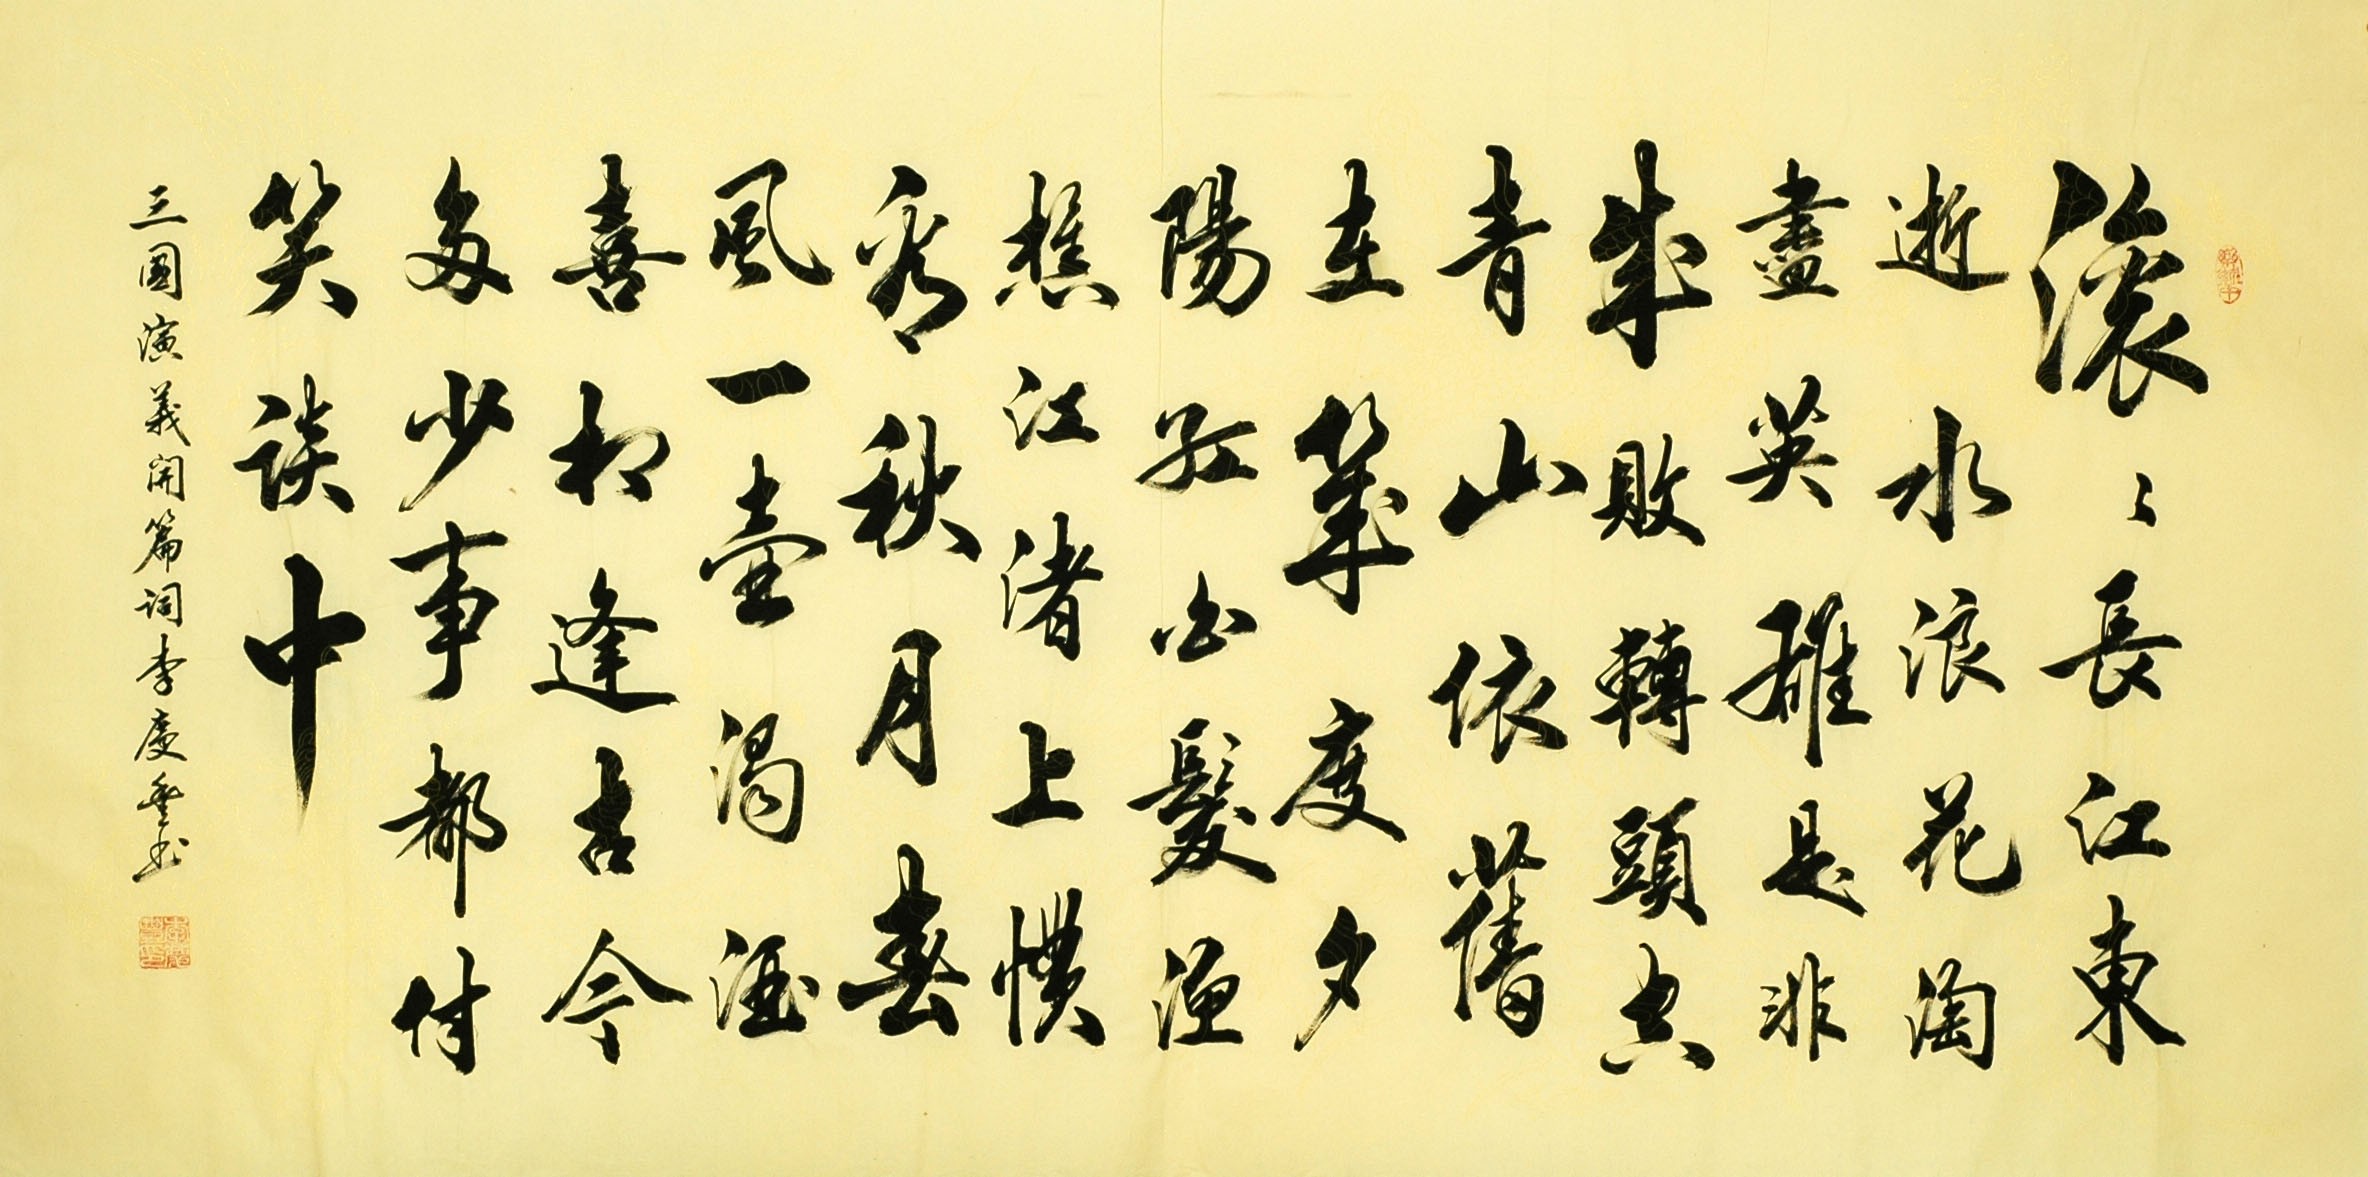 滚〻長江東
逝水浪花淘
盡英雄是非
成敗轉頭空
青山依舊
在幾度夕
陽紅白髮漁
樵江渚上慣
看秋月春
風一壺濁酒
喜相逢古今
多少事都付
笑談中
三國演義開篇詞李慶豐书